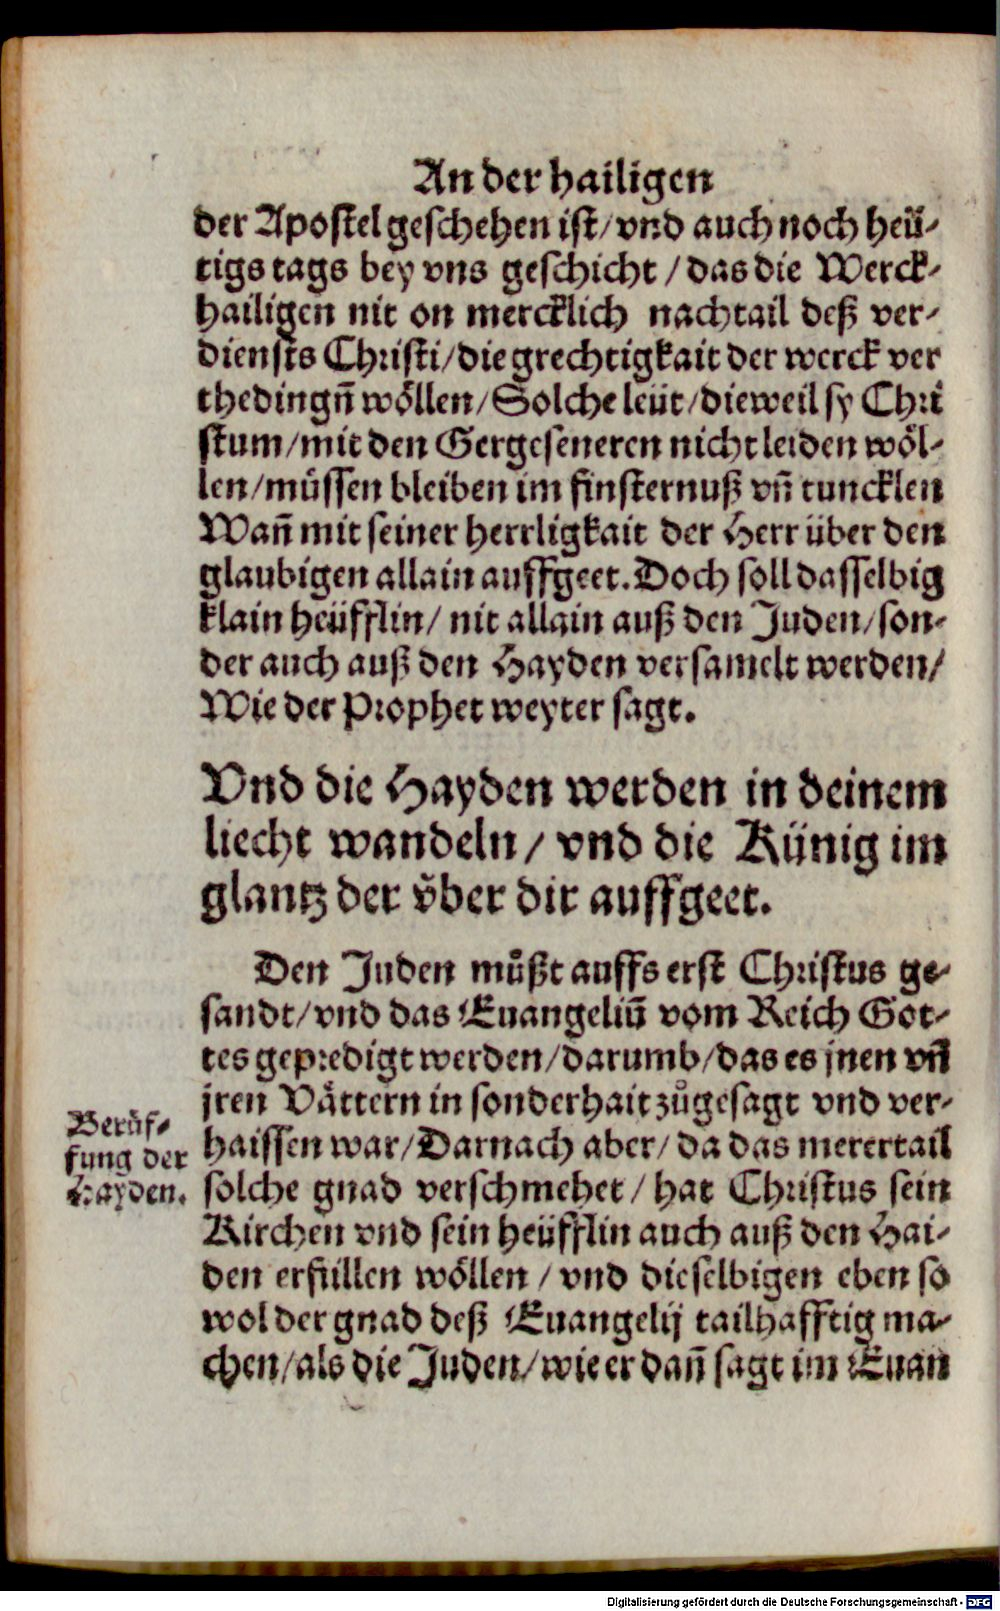 An der hailigen
der Apostel geschehen ist/ vnd auch noch heü-
tigs tags bey vns geschicht / das die Werck-
hailigen nit on mercklich nachtail deß ver-
diensts Christi/ die grechtigkait der werck ver
thedingñ wöllen/ Solche leüt/ dieweil sy Chri
stum/ mit den Gergeseneren nicht leiden wöl-
len/ müssen bleiben im finsternuß vñ tuncklen
Wañ mit seiner herrligkait der Herr über den
glaubigen allain auffgeet. Doch soll dasselbig
klain heüfflin/ nit allain auß den Juden/ son-
der auch auß den Hayden versamelt werden/
Wie der Prophet weyter sagt.
Vnd die Hayden werden in deinem
liecht wandeln/ vnd die Künig im
glantz der vͤber dir auffgeet.
Den Juden müßt auffs erst Christus ge-
sandt/ vnd das Euangeliū vom Reich Got-
tes geprediget werden/ darumb/ das es jnen vñ
jren Vättern in sonderhait zůgesagt vnd ver-
haissen war/ Darnach aber/ da das merertail
solche gnad verschmehet/ hat Christus sein
Kirchen vnd sein heüfflin auch auß den Hai-
den erfüllen wöllen / vnd dieselbigen eben so
wol der gnad deß Euangelij tailhafftig ma-
chen/ als die Juden/ wie er dañ sagt im Euan
Berůf-
fung der
Hayden.
Digitalisierung gefördert durch die Deutsche Forschungsgemeinschaft - DFG